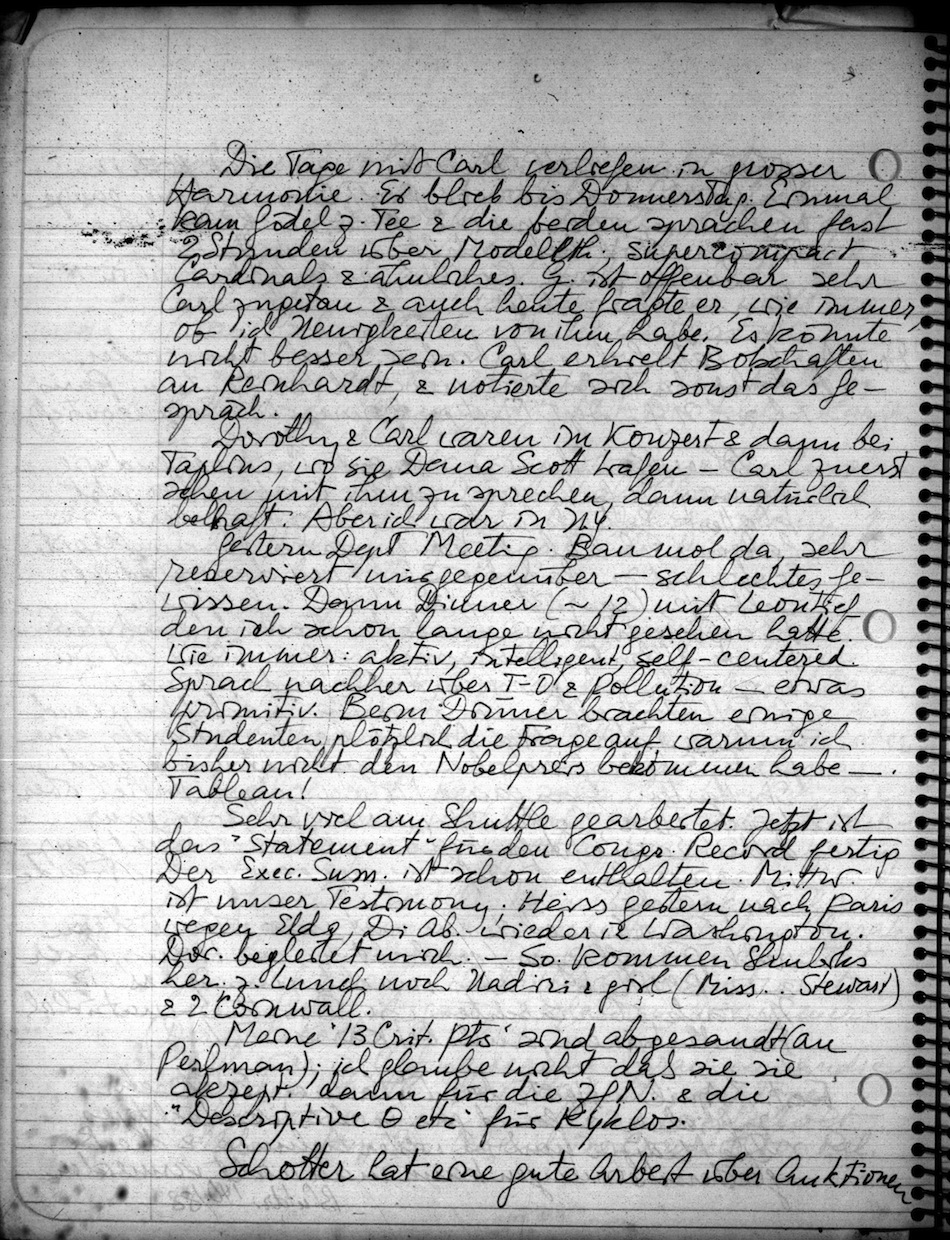 Die Tage mit Carl verliefen in grosser
Harmonie. Er blieb bis Donnerstag. Einmal
kam Gödel z. Tee & die beiden sprachen fast
2 Stunden über Modellth., supercompact
Cardinals & ähnliches. G. ist offenbar sehr
Carl zugetan & auch heute fragte er, wie immer,
ob ich Neuigkeiten von ihm habe. Es könnte
nicht besser sein. Carl erhielt Botschaften
an Reinhardt, & notierte sich sonst das Ge-
spräch.
Dorothy & Carl waren im Konzert & dann bei
Taplins, wo sie Dana Scott trafen – Carl zuerst
scheu mit ihm zu sprechen, dann natürlich
lebhaft. Aber ich war in NY.
Gestern Dept Meeting. Baumol da, sehr
reserviert uns gegenüber – schlechtes Ge-
wissen. Dann Dinner (~12) mit Leontief
den ich schon lange nicht gesehen hatte.
Wie immer: aktiv, intelligent, self-centered.
Sprach nachher über I-O & Pollution – etwas
primitiv. Beim Dinner brachten einige
Studenten plötzlich die Frage auf warum ich
bisher nicht den Nobelpreis bekommen habe –.
Tableau!
Sehr viel am Shuttle gearbeitet. Jetzt ist
das "Statement" für den Congr. Record fertig
Der Exec. Sum. ist schon enthalten. Mittw.
ist unser Testimony; Heiss gestern nach Paris
wegen Eldo, Di Ab. wieder in Washington.
Dor. begleitet mich. – So. kommen Shubiks
her. z. Lunch noch Nadiri & girl (Miss .. Stewart)
& 2 Cornwall.
Meine '13 Crit. Pts' sind abgesandt (an
Perlman); ich glaube nicht das sie sie
akzept. dann für die ZfN. & die
"Descriptive θ etc" für Kyklos.
Schotter hat eine gute Arbeit über Auktionen